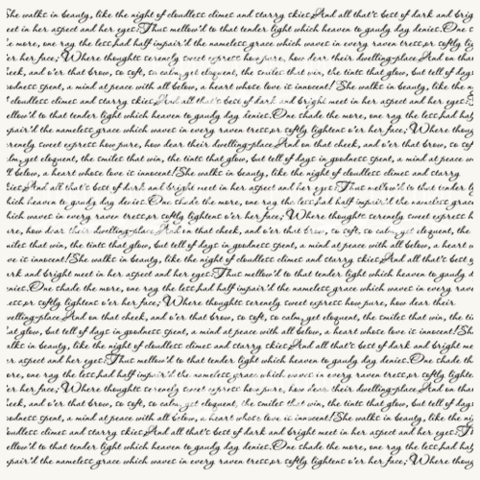 She walks in beauty, like the night of cloudless climes and starry skies;And all that's best of dark and brig
eet in her aspect and her eyes:Thus mellow'd to that tender light which heaven to gaudy day denies.One s
e more, one ray the less,had half impair'd the nameless grace which waves in every raven tress,or softly lig
er her face; Where thoughts serenely sweet express how pure, how dear their dwelling-place.And on tha
eek, and o'er that brow, so soft, so calm,yet eloquent, the smiles that win, the tints that glow, but tell of days
oodness spent, a mind at peace with all below, a heart whose love is innocent! She walks in beauty, like the n
f cloudless climes and starry skies;And all that's best of dark and bright meet in her aspect and her eyes:
ellow'd to that tender light which heaven to gaudy day denies.One shade the more, one ray the less,had half
pair'd the nameless grace which waves in every raven tress,or softly lightens o'er her face; Where thoug
renely sweet express how pure, how dear their dwelling-place.And on that cheek, and o'er that brow, so sof
lm,yet eloquent, the smiles that win, the tints that glow, but tell of days in goodness spent, a mind at peace w
ll below, a heart whose love is innocent!She walks in beauty, like the night of cloudless climes and starry
ies;And all that's best of dark and bright meet in her aspect and her eyes:Thus mellow'd to that tender l
hich heaven to gaudy day denies.One shade the more, one ray the less,had half impair'd the nameless grac
hich waves in every raven tress,or softly lightens o'er her face; Where thoughts serenely sweet express h
re, how dear their dwelling-place.And on that cheek, and o'er that brow, so soft, so calm,yet eloquent, the
miles that win, the tints that glow, but tell of days in goodness spent, a mind at peace with all below, a heart w
ve is innocent!She walks in beauty, like the night of cloudless climes and starry skies;And all that's best o
rk and bright meet in her aspect and her eyes:Thus mellow'd to that tender light which heaven to gaudy d
enies.One shade the more, one ray the less,had half impair'd the nameless grace which waves in every rave
ess,or softly lightens o'er her face; Where thoughts serenely sweet express how pure, how dear their
welling-place.And on that cheek, and o'er that brow, so soft, so calm,yet eloquent, the smiles that win, the ti
at glow, but tell of days in goodness spent, a mind at peace with all below, a heart whose love is innocent!Sh
alks in beauty, like the night of cloudless climes and starry skies;And all that's best of dark and bright me
er aspect and her eyes:Thus mellow'd to that tender light which heaven to gaudy day denies.One shade th
ore, one ray the less,had half impair'd the nameless grace which waves in every raven tress,or softly lighten
er her face; Where thoughts serenely sweet express how pure, how dear their dwelling-place.And on tha
eek, and o'er that brow, so soft, so calm,yet eloquent, the smiles that win, the tints that glow, but tell of days
oodness spent, a mind at peace with all below, a heart whose love is innocent!She walks in beauty, like the nig
oudless climes and starry skies;And all that's best of dark and bright meet in her aspect and her eyes:T
ellow'd to that tender light which heaven to gaudy day denies.One shade the more, one ray the less,had hal
pair'd the nameless grace which waves in every raven tress,or softly lightens o'er her face; Where thoug